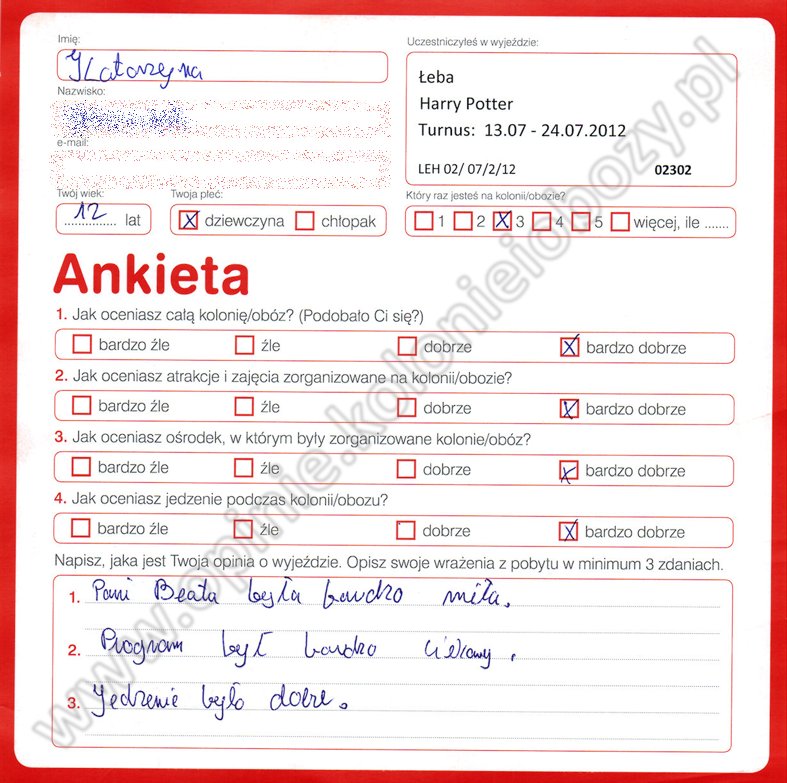 Imię:
Katarzyna
Nazwisko:
e-mail:
Twój wiek:
12 lat
Twoja płeć:
X dziewczyna chłopak
Uczestniczyłeś w wyjeździe:
Łeba
Harry Potter
Turnus: 13.07 - 24.07.2012
LEH 02/ 07/2/12 02302
Który raz jesteś na kolonii/obozie?
1 2 X 3 4 5 więcej, ile .......
Ankieta
1. Jak oceniasz całą kolonię/obóz? (Podobało Ci się?)
bardzo źle źle dobrze X bardzo dobrze
2. Jak oceniasz atrakcje i zajęcia zorganizowane na kolonii/obozie?
bardzo źle źle dobrze X bardzo dobrze
3. Jak oceniasz ośrodek, w którym były zorganizowane kolonie/obóz?
bardzo źle źle dobrze X bardzo dobrze
4. Jak oceniasz jedzenie podczas kolonii/obozu?
bardzo źle źle dobrze X bardzo dobrze
Napisz, jaka jest Twoja opinia o wyjeździe. Opisz swoje wrażenia z pobytu w minimum 3 zdaniach.
1. Pani Beata była bardzo miła.
2. Program był bardzo ciekawy.
3. Jedzenie było dobre.
www.opinie.kolonieiobozy.pl